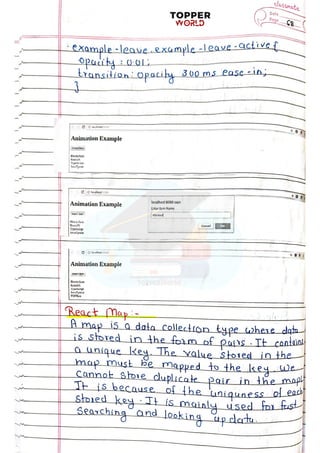 classmate
Date
Page 68
TOPPER
WORLD
.example-leave.example-leave-active {
opacity : 0.01;
transition: opacity 300ms ease-in;
}
Animation Example
Animation Example
localhost:8080 says
Enter Item Name
Cancel
Animation Example
React Map :-
A map is a data collection type where data
is stored in the form of pairs. It contains
a unique key. The value stored in the
map must be mapped to the key. We
cannot store duplicate pair in the map.
It is because of the uniquness of each
stored key. It is mainly used for fast
searching and looking up data.